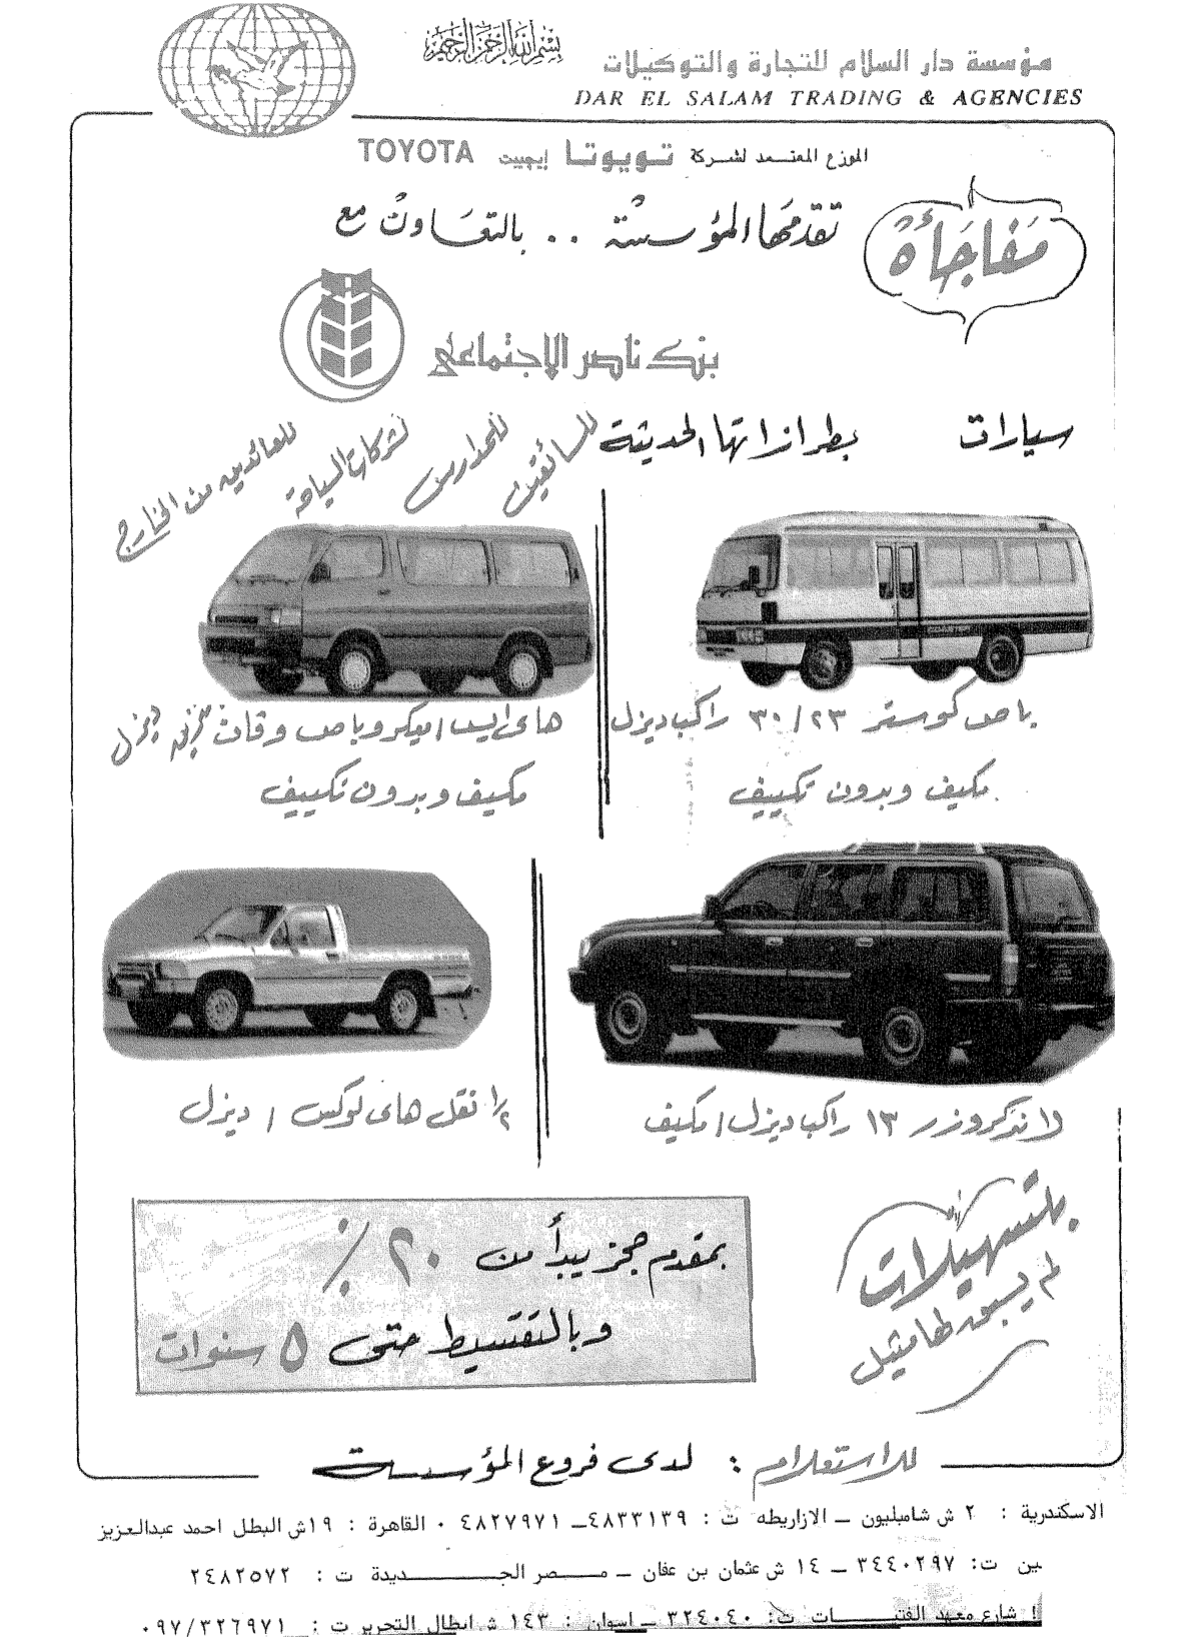 بسم الله الرحمن الرحيم
مؤسسة دار السلام للتجارة والتوكيلات
DAR EL SALAM TRADING & AGENCIES
الموزع المعتمد لشركة تويوتا إيجيبت TOYOTA
مفاجأة
تقدمها المؤسسة .. بالتعاون مع
بنك ناصر الاجتماعى
سيارات بطرازاتها الحديثة
للسائقين
للمدارس
لشركات السياحة
للعائدين من الخارج
باص كوستر ٣٠/٢٣ راكب ديزل
مكيف وبدون تكييف
هاى ايس / ميكروباص وفان بنزين ديزل
مكيف وبدون تكييف
لاندكروزر ١٣ راكب ديزل / مكيف
١/٢ نقل هاى لوكس / ديزل
بتسهيلات
لم يسبق لها مثيل
بمقدم حجز يبدأ من ٢٠ ٪
وبالتقسيط حتى ٥ سنوات
للاستعلام : لدى فروع المؤسسة
الاسكندرية : ٢ ش شامبليون ــ الازاريطه ت : ٤٨٣٣١٣٩ــ ٤٨٢٧٩٧١ ٠ القاهرة : ١٩ش البطل احمد عبدالعزيز
ين ت: ٣٤٤٠٢٩٧ ــ ١٤ ش عثمان بن عفان ــ مصر الجديدة ت : ٢٤٨٢٥٧٢
شارع معهد الفتيات ت: ٣٢٤٠٤٠ ــ اسوان : ١٤٣ ش ابطال التحرير ت : ٠٩٧/٣٢٦٩٧١